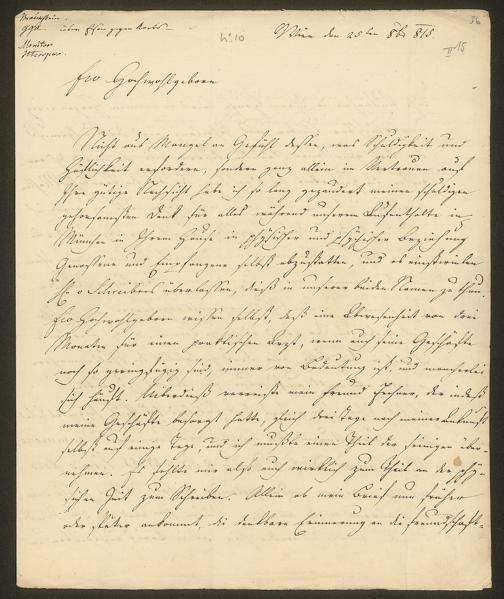 über Eisen gegen Krebs –
N: 10
Wien den 25ten 8br 815
36
II 15
Ew Hochwohlgeboren
Nicht aus Mangel an Gefühl dessen, was Schuldigkeit und
Höflichkeit erfordern, sondern ganz allein im Vertrauen auf
Ihre gütige Nachsicht habe ich so lang gezaudert meinen schuldigen
gehorsamsten Dank für alles während unserem Aufenthalte in
München in Ihrem Hause in physischer und psychischer Beziehung
Genossene und Empfangene selbst abzustatten, und es einstweilen
überlassen, dieß in unserer beiden Namen zu thun.
Ew Hochwohlgeboren wissen selbst, daß eine Abwesenheit von drei
Monaten für einen praktischen Arzt, wenn auch seine Geschäfte
noch so geringfügig sind, immer von Bedeutung ist, und mancherlei
sich häuft. Ueberdieß verreiste mein Freund der indeß
meine Geschäfte besorgt hatte, gleich drei Tage nach meiner Ankunft
selbst auf einige Tage, und ich mußte einen Theil der seinigen über-
nehmen. Es fehlte mir also auch wirklich zum Theil an der phy-
sischen Zeit zum Schreiben. Allein ob mein Brief nun früher
oder später ankommt, die dankbare Erinnerung an die freundschaft-